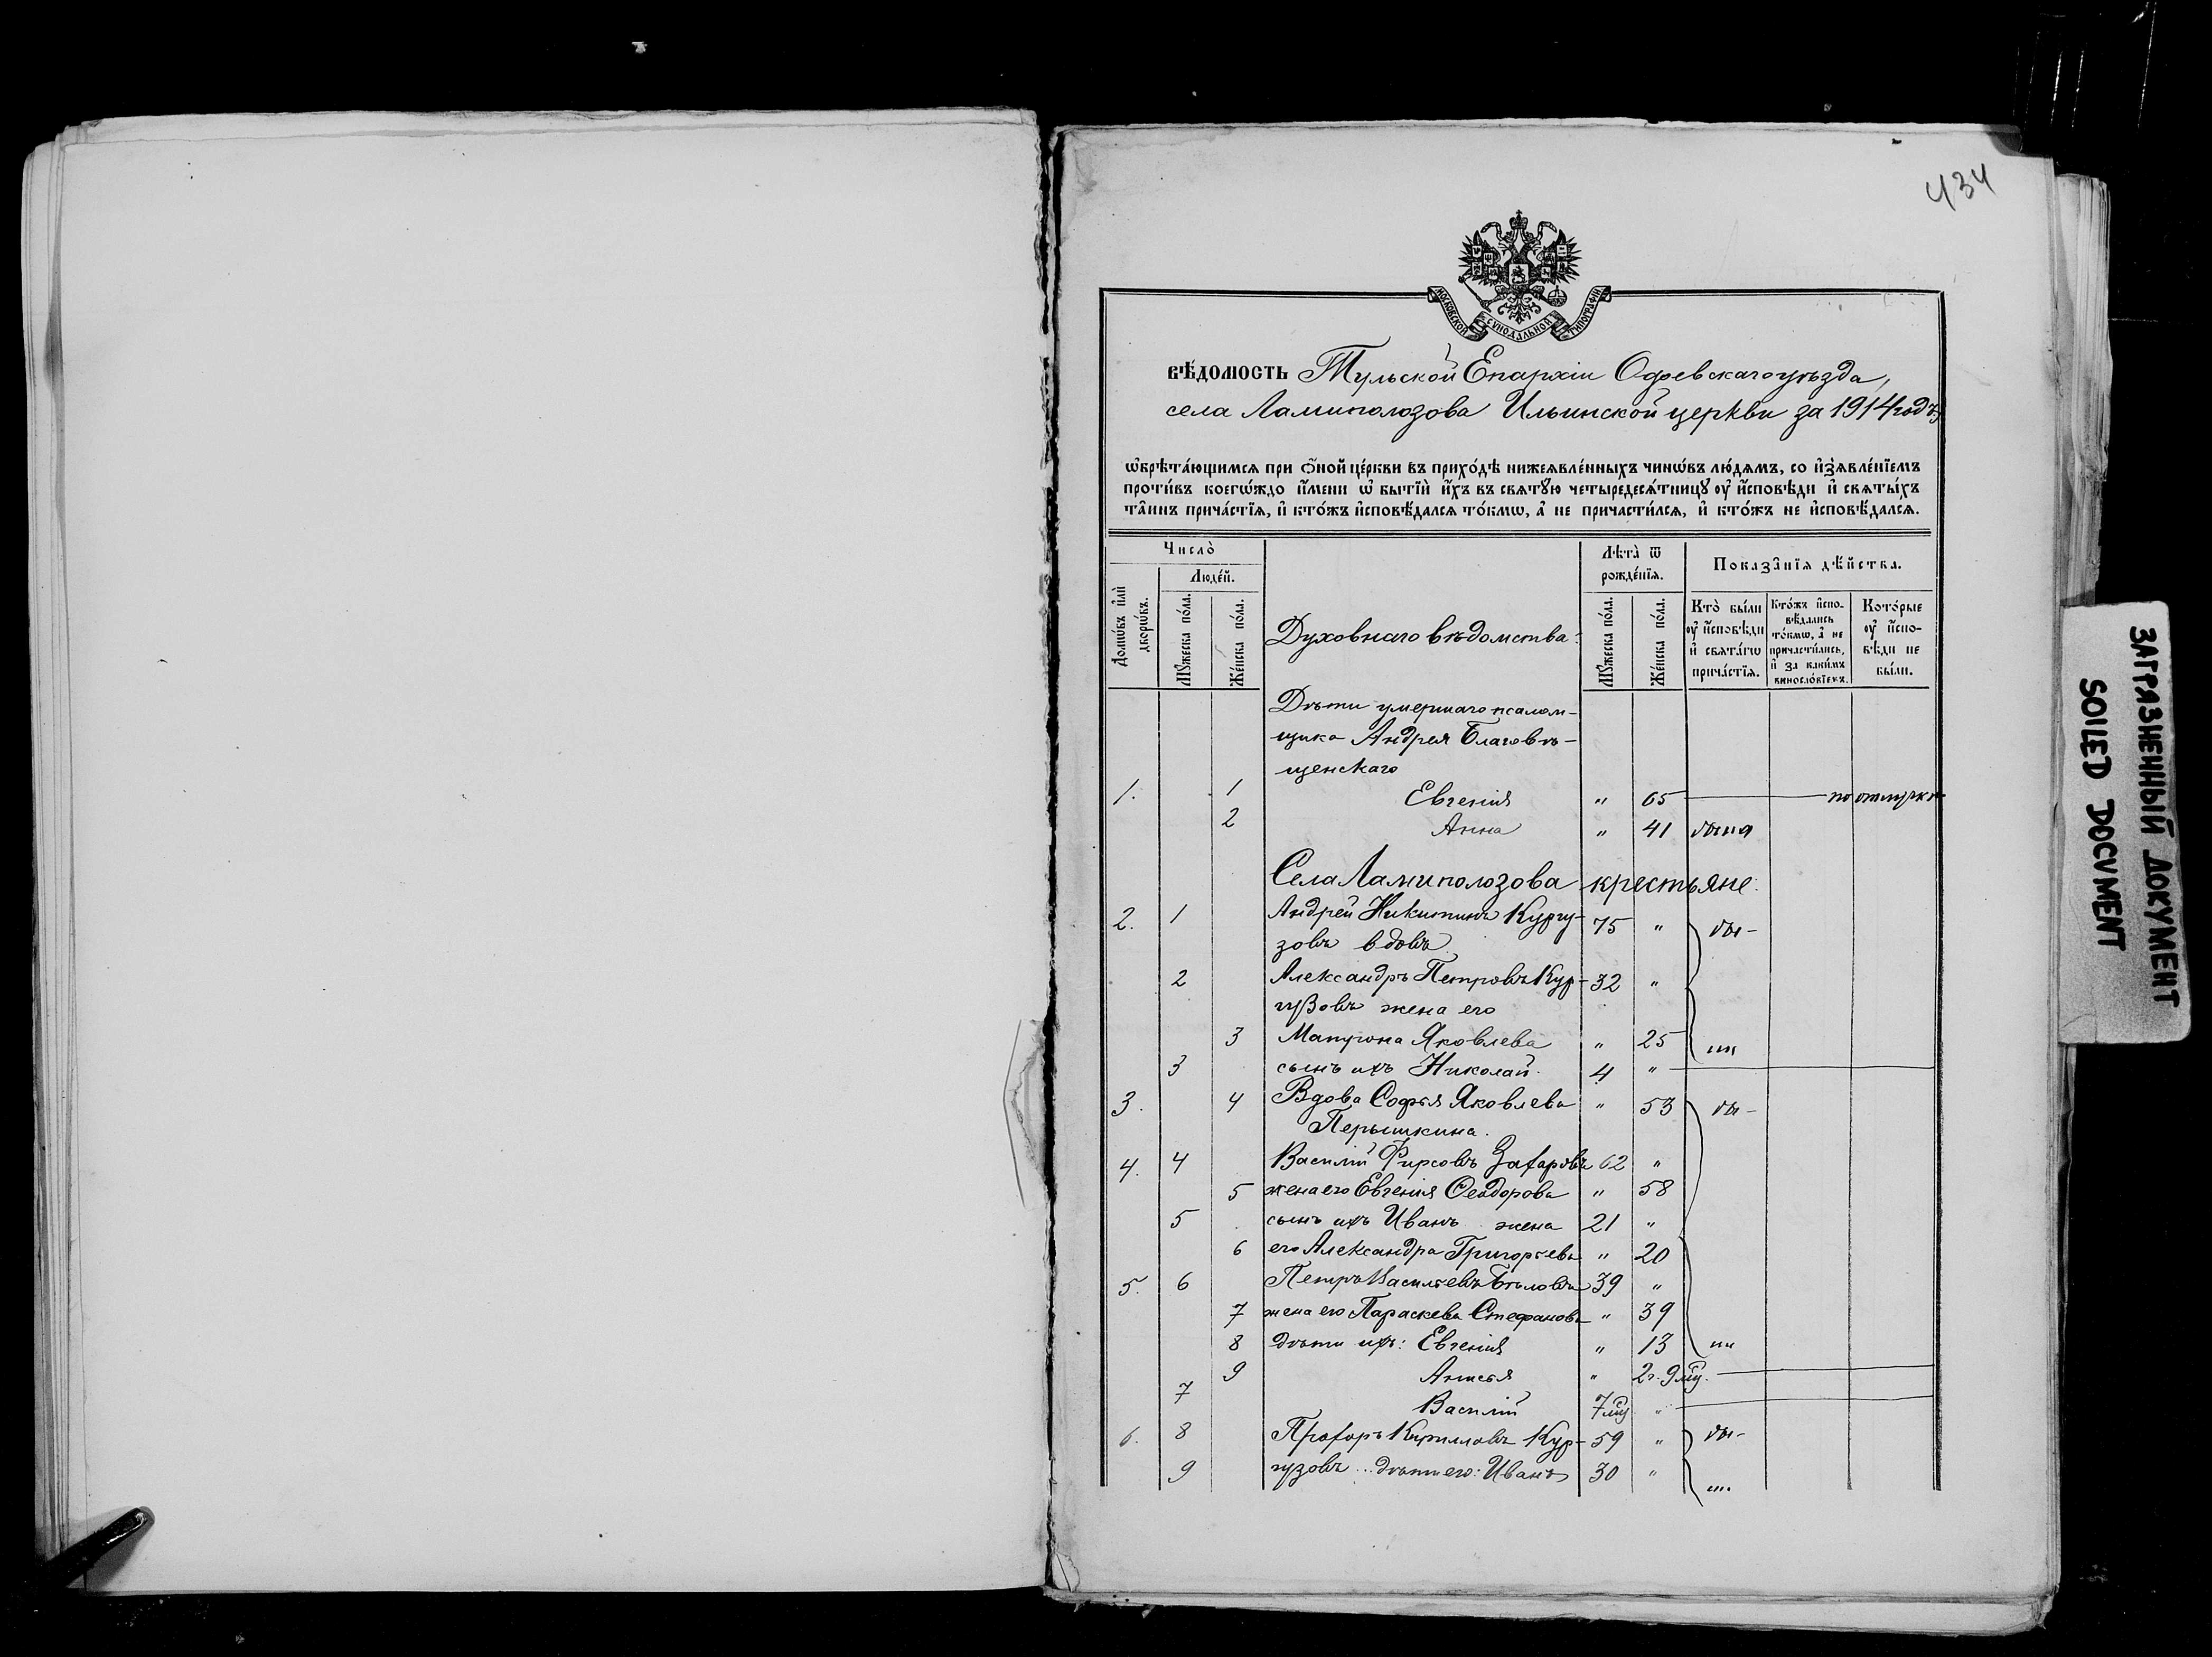 434
МОСКОВСКОЙ СѴНОДАЛЬНОЙ ТИПОГРАФІИ
вѣ́домость Тульской Епархіи Одоевскаго уѣзда,
села Ламиполозова Ильинской церкви за 1914 годъ,
ѡ҆брѣта́ющимся при ѻ҆́ной це́ркви въ прихо́дѣ нижеявле́нныхъ чинѡ́въ лю́дямъ, со и҆з̾явле́нїемъ
проти́въ коегѡ́ждо и҆́мени ѡ҆ бытїѝ и҆́хъ въ святꙋ́ю четыредеся́тницꙋ ᲂу҆ и҆́сповѣди и҆ святы́хъ
та̑инъ прича́стїя, и҆ кто́жъ и҆сповѣ́дался то́кмѡ, а҆ не причасти́лся, и҆ кто́жъ не и҆сповѣ́дался.
Число̀ Лѣта̀ ѿ рожде́нїя. Показа̑нїя дѣ́йства.
Люде́й.
Домѡ́въ и҆лѝ дворѡ́въ. Мꙋ́жеска по́ла. Же́нска по́ла. Духовнаго вѣдомства: Мꙋ́жеска по́ла. Же́нска по́ла. Кто̀ бы́ли ᲂу҆ и҆сповѣди и҆ свята́гѡ прича́стїя. Кто́жъ и҆спо-вѣдались то́кмѡ, а҆ не причасти́лись, и҆ за каки́мъ виносло́вїемъ. Кото́рые ᲂу҆ и҆спо-вѣди не бы́ли.
Дѣти умершаго псалом-
щика Андрея Благовѣ-
щенскаго
1. 1 Евгенія " 65 по отлучкѣ
2 Анна " 41 была
Села Ламиполозова крестьяне:
2. 1 Андрей Никитинъ Кургу- 75 " бы-
зовъ вдовъ
2 Александръ Петровъ Кур- 32 "
гузовъ жена его
3 Матрона Яковлева " 25 ли
3 сынъ ихъ Николай. 4 "
3. 4 Вдова Софья Яковлева " 53 бы-
Перышкина.
4. 4 Василій Фирсовъ Захаровъ 62 "
5 жена его Евгенія Ѳеодорова " 58
5 сынъ ихъ Иванъ жена 21 "
6 его Александра Григорьева " 20
5. 6 Петръ Васильевъ Бѣловъ 39 "
7 жена его Параскева Стефанова " 39
8 дѣти ихъ: Евгенія " 13 ли
9 Анисья " 2г. 9 мц.
7 Василій 7 мц "
6. 8 Прохоръ Кирилловъ Кур- 59 " бы-
9 гузовъ.. дѣти его: Иванъ 30 " ли.
ЗАГРЯЗНЕННЫЙ ДОКУМЕНТ
SOILED DOCUMENT